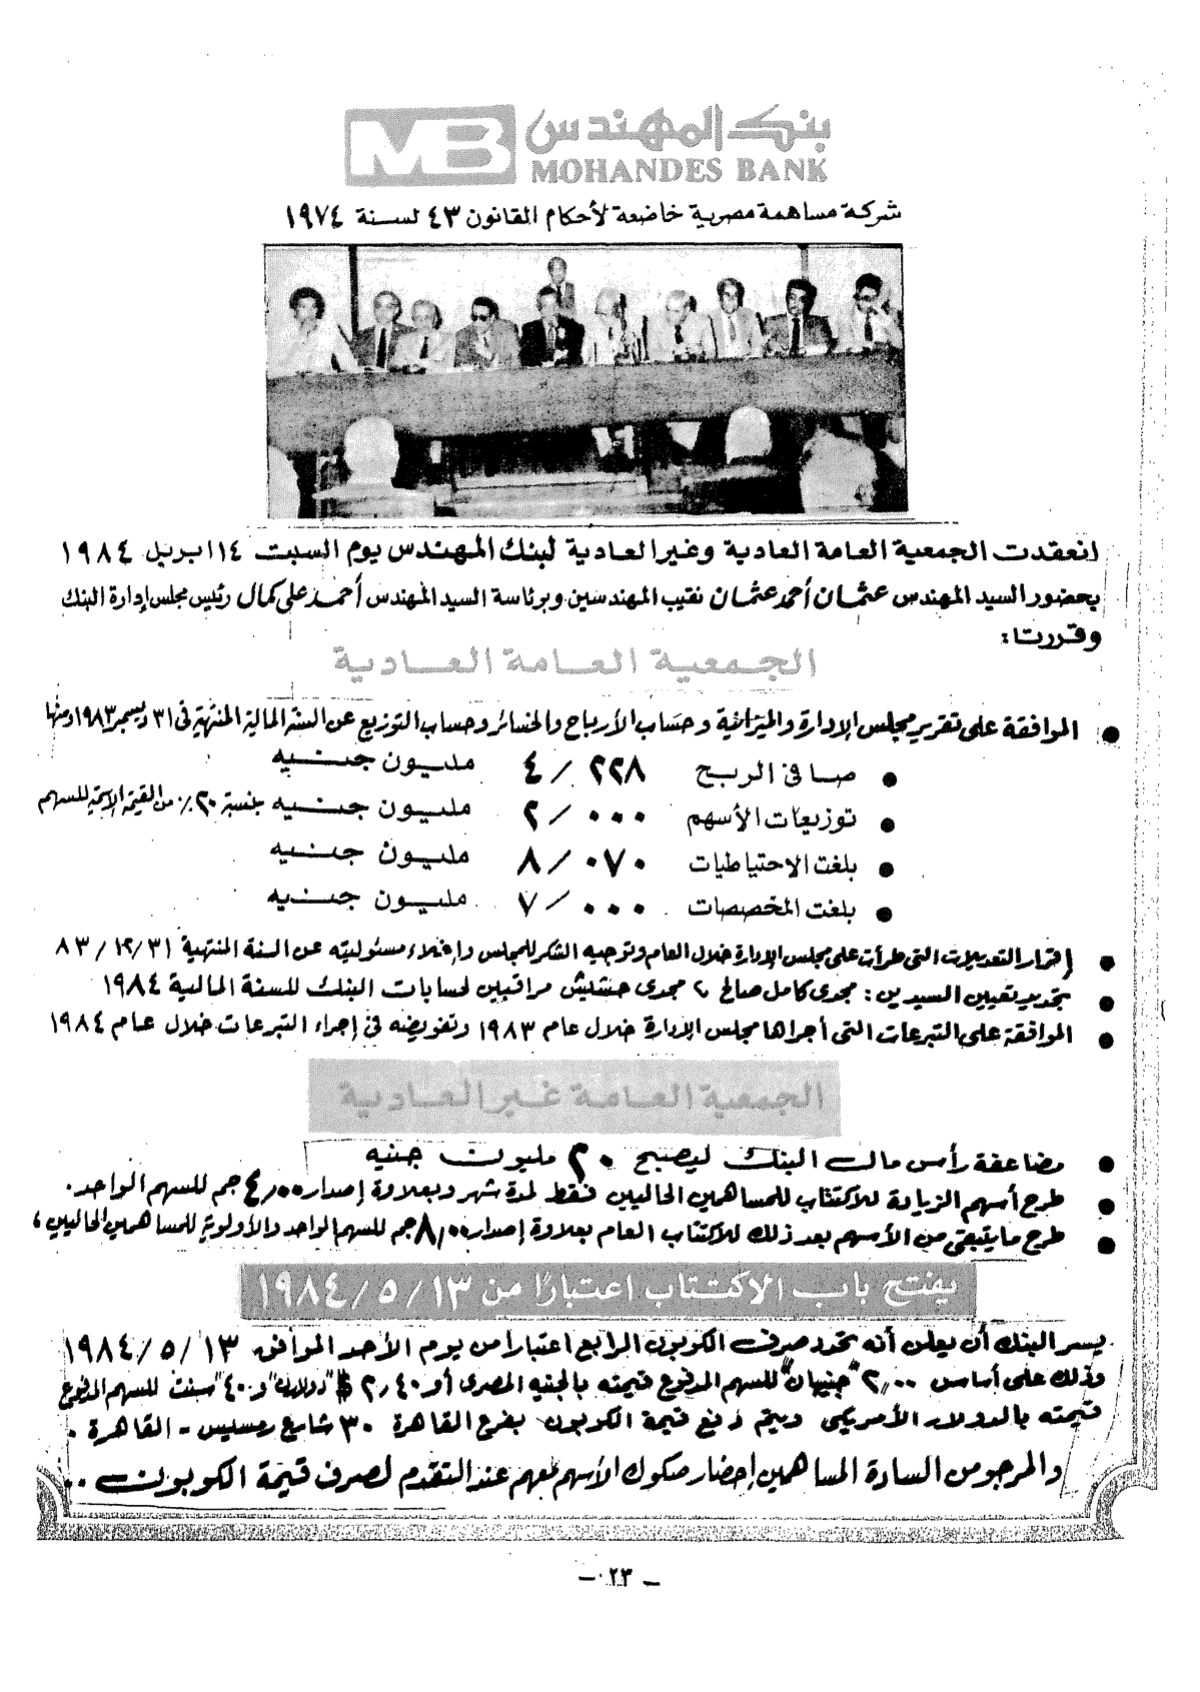 بنك المهندس
MB
MOHANDES BANK
شركة مساهمة مصرية خاضعة لأحكام القانون ٤٣ لسنة ١٩٧٤
انعقدت الجمعية العامة العادية وغير العادية لبنك المهندس يوم السبت ١٤ ابريل ١٩٨٤
بحضور السيد المهندس عثمان أحمد عثمان نقيب المهندسين وبرئاسة السيد المهندس أحمد على كمال رئيس مجلس إدارة البنك
وقررت :
الجمعية العامة العادية
● الموافقة على تقرير مجلس الإدارة والميزانية وحساب الأرباح والخسائر وحساب التوزيع عن السنة المالية المنتهية فى ٣١ ديسمبر ١٩٨٣ ومنها
● صافى الربح ٤/٢٢٨ مليون جنيه
● توزيعات الأسهم ٢/٠٠٠ مليون جنيه بنسبة ٢٠٪ من القيمة الاسمية للسهم
● بلغت الاحتياطيات ٨/٠٧٠ مليون جنيه
● بلغت المخصصات ٧/٠٠٠ مليون جنيه
● إقرار التعديلات التى طرأت على مجلس الإدارة خلال العام وتوجيه الشكر للمجلس وإخلاء مسئوليته عن السنة المنتهية ٨٣/١٢/٣١
● تجديد تعيين السيدين : مجدى كامل صالح ، مجدى حشيش مراقبين لحسابات البنك للسنة المالية ١٩٨٤
● الموافقة على التبرعات التى أجراها مجلس الإدارة خلال عام ١٩٨٣ وتفويضه فى إجراء التبرعات خلال عام ١٩٨٤
الجمعية العامة غير العادية
● مضاعفة رأس مال البنك ليصبح ٢٠ مليون جنيه
● طرح أسهم الزيادة للاكتتاب للمساهمين الحاليين فقط لمدة شهر وبعلاوة إصدار ٤,٠٠ جم للسهم الواحد .
● طرح ما يتبقى من الأسهم بعد ذلك للاكتتاب العام بعلاوة إصدار ٨,٠٠ جم للسهم الواحد والأولوية للمساهمين الحاليين ،
يفتح باب الاكتتاب اعتبارًا من ١٩٨٤/٥/١٣
يسر البنك أن يعلن أنه تحدد صرف الكوبون الرابع اعتبارا من يوم الأحد الموافق ١٩٨٤/٥/١٣
وذلك على أساس ٢,٠٠ "جنيهان" للسهم المدفوع قيمته بالجنيه المصرى أو ٢,٤٠ $ "دولاران" و"٤٠" سنت للسهم المدفوع
قيمته بالدولار الأمريكى ويتم دفع قيمة الكوبون بفرع القاهرة ٣٠ شارع رمسيس - القاهرة .
والمرجو من السادة المساهمين إحضار صكوك الأسهم معهم عند التقدم لصرف قيمة الكوبون ..
- ٢٣ -